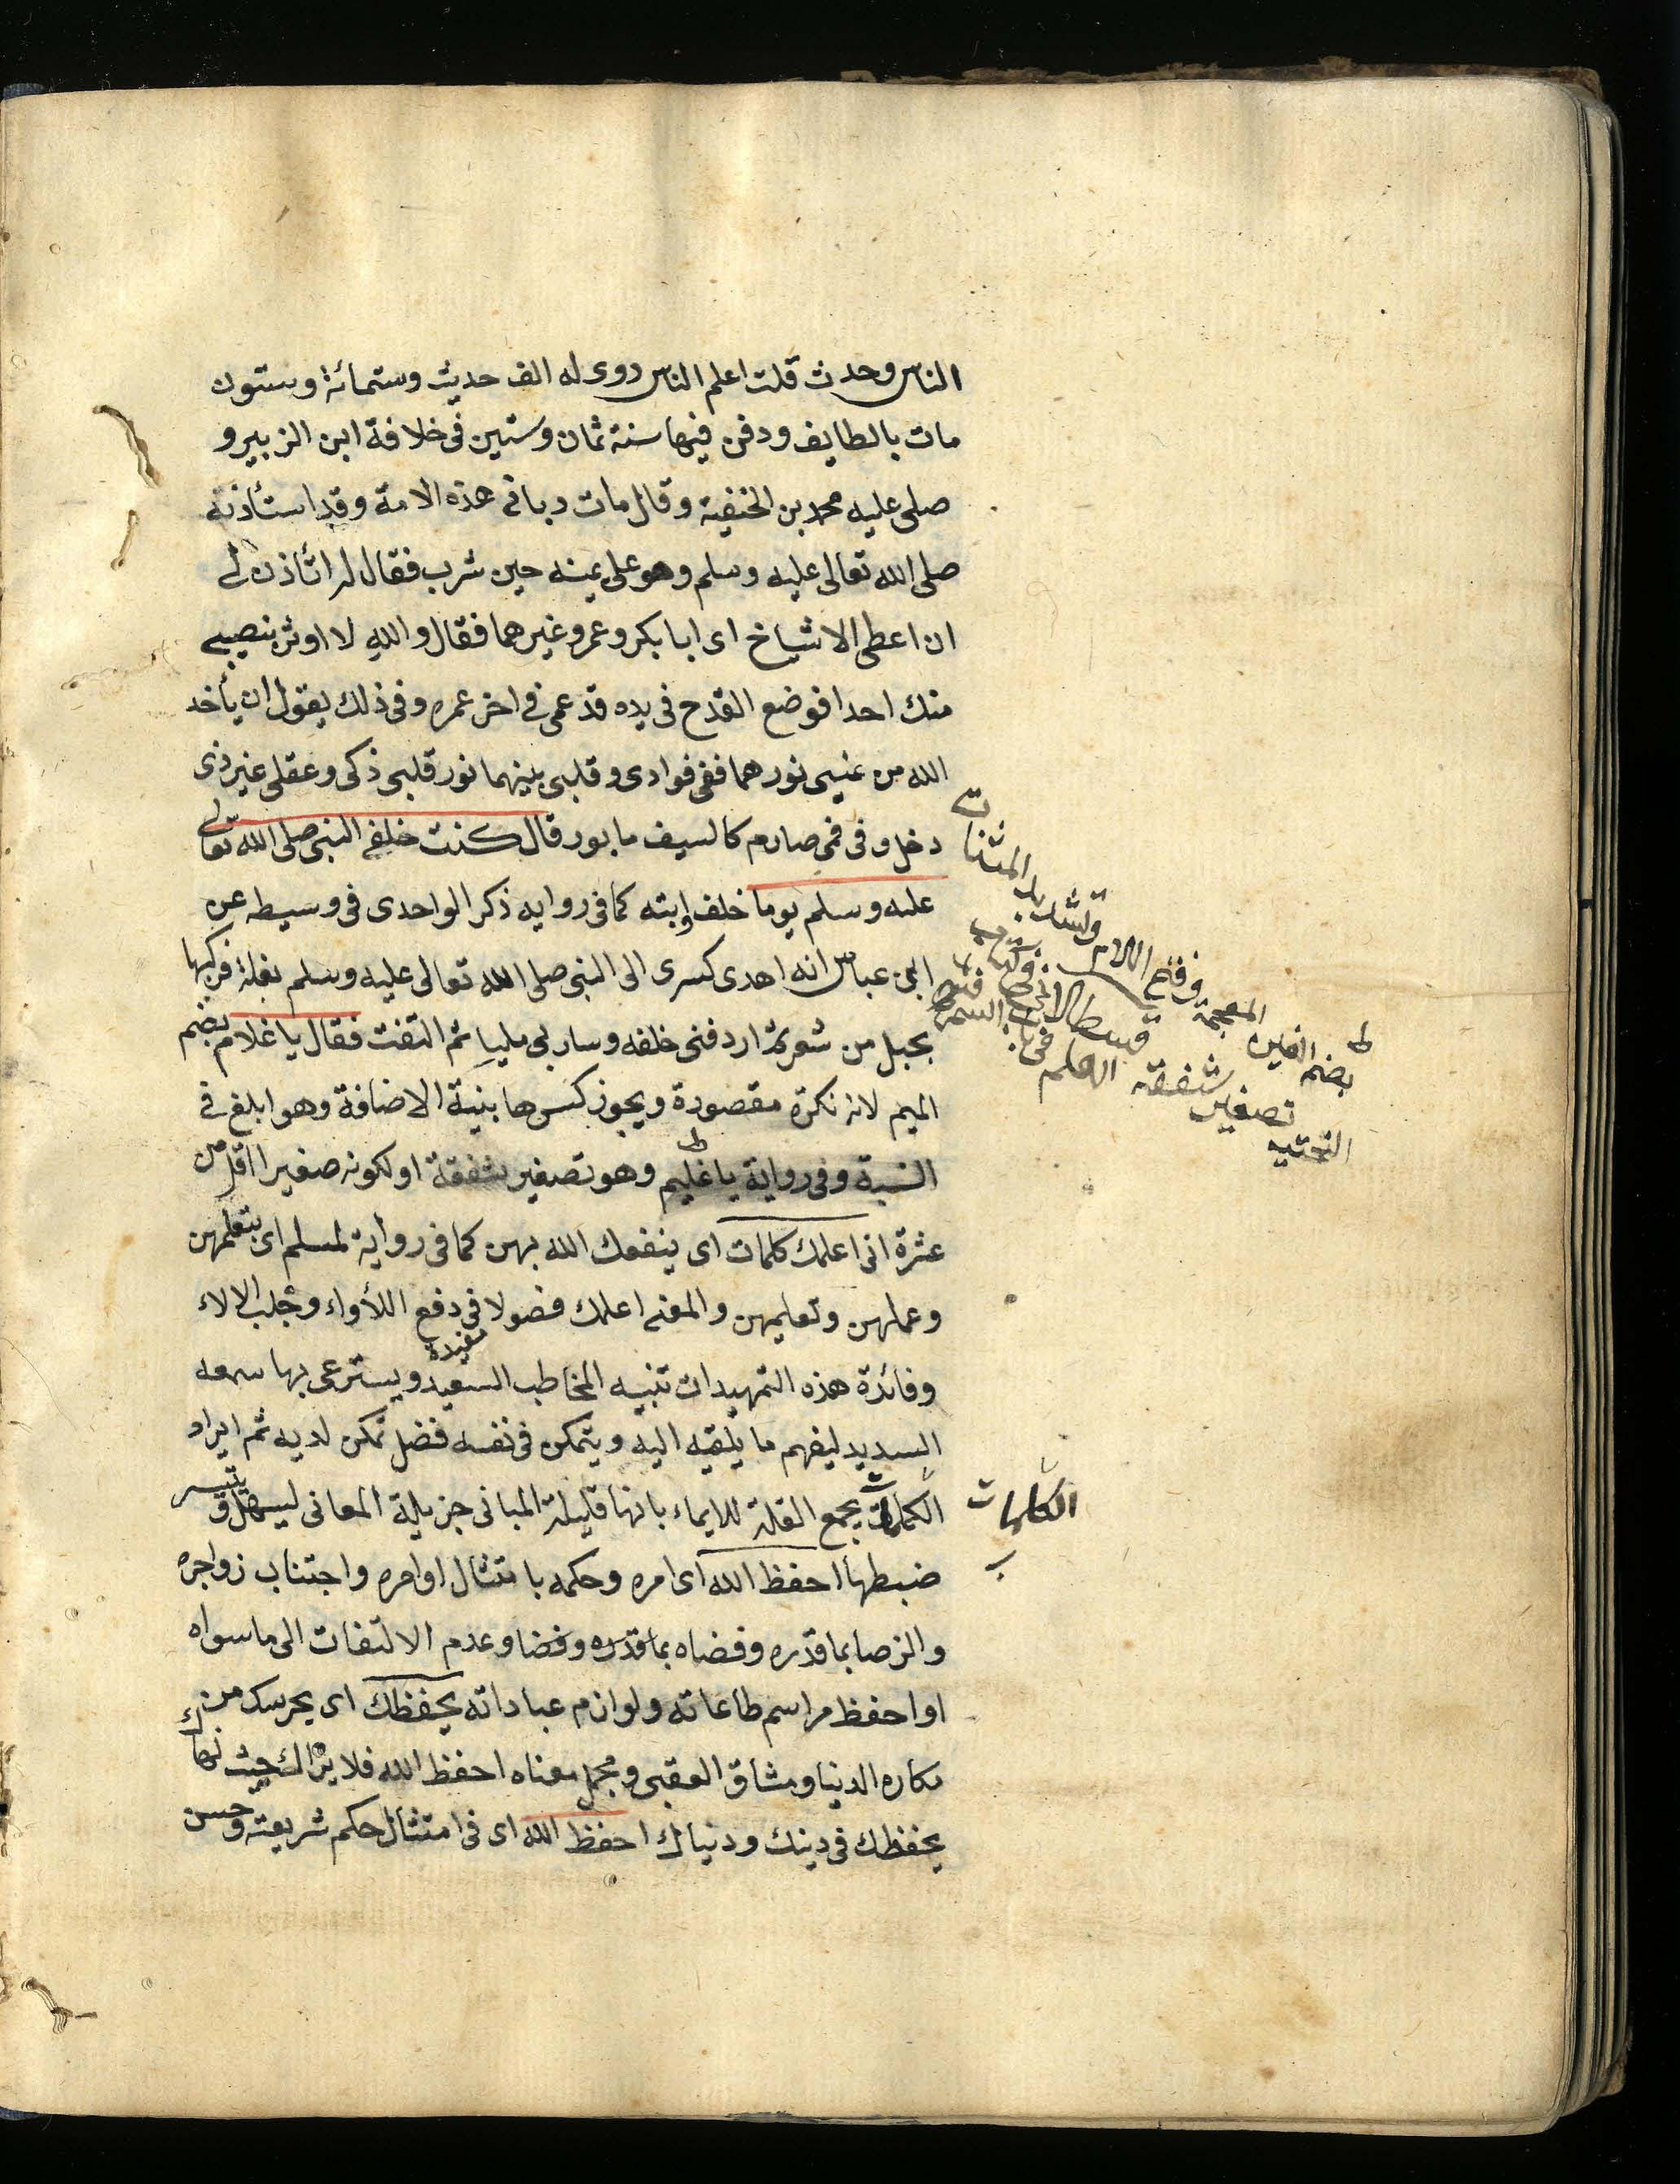 الناس وحدث قلت اعلم الناس روى له الف حديث وستمائة وستون
مات بالطايف ودفن فيها سنة ثمان وستين فى خلافة ابن الزبير و
صلى عليه محمد بن الحنفية وقال مات ربانى هذه الامة وقد استأذنه
صلى الله تعالى عليه وسلم وهو على يمينه حين شرب فقال له اتأذن لى
ان اعطى الاشياخ اى ابا بكر وعمر وغيرهما فقال والله لا اوثر بنصيبى
منك احدا فوضع القدح فى يده قد عمى فى اخر عمره وفى ذلك يقول ان يأخد
الله من عينى نورهما ففى فوادى وقلبى بينهما نور قلبى ذكى وعقلى غير ذى
دخل وفى فمى صارم كالسيف مابور قال كنت خلف النبى صلى الله تعالى
عليه وسلم يوما خلف دابته كما فى روايه ذكر الواحدى فى وسيطه عن
ابن عباس انه اهدى كسرى الى النبى صلى الله تعالى عليه وسلم بغلة فركبها
بحبل من شعر ثم اردفنى خلفه وسار بى مليا ثم التفت فقال يا غلام بضم
الميم لانه نكرة مقصودة ويجوز كسرها بنية الاضافة وهو ابلغ فى
النسبة وفى رواية يا غليم وهو تصغير شفقة او لكونه صغيرا اقل من
عشرة انى اعلمك كلمات اى ينفعك الله بهن كما فى رواية لمسلم اى بتعلمهن
وعملهن وتعليمهن والمعنى اعلمك فصولا فى دفع اللأواء وجلب الالاء
مفيدة
وفائدة هذه التمهيدات تنبيه المخاطب السعيد ويسترعى بها سمعه
السديد ليفهم ما يلقيه اليه ويتمكن فى نفسه فضل تمكن لديه ثم ايراد
الكلمات بجمع القلة للايماء بانها قليلة المبانى جزيلة المعانى ليسهل ويتيسر
ضبطها احفظ الله اى امره وحكمه بامتثال اوامره واجتناب زواجره
والرضا بما قدره وقضاه بما قدره وقضا وعدم الالتفات الى ما سواه
او احفظ مراسم طاعاته ولوازم عباداته يحفظك اى يحرسك من
مكاره الدنيا ومشاق العقبى ومجمل معناه احفظ الله فلا يراك حيث نهاك
يحفظك فى دينك ودنياك احفظ الله اى فى امتثال حكم شريعته وحسن
ط
بضم الغين
المعجمة
وفتح اللام
وتشديد
المثناة
التحتيه
تصغير
شفقة
الكلمات